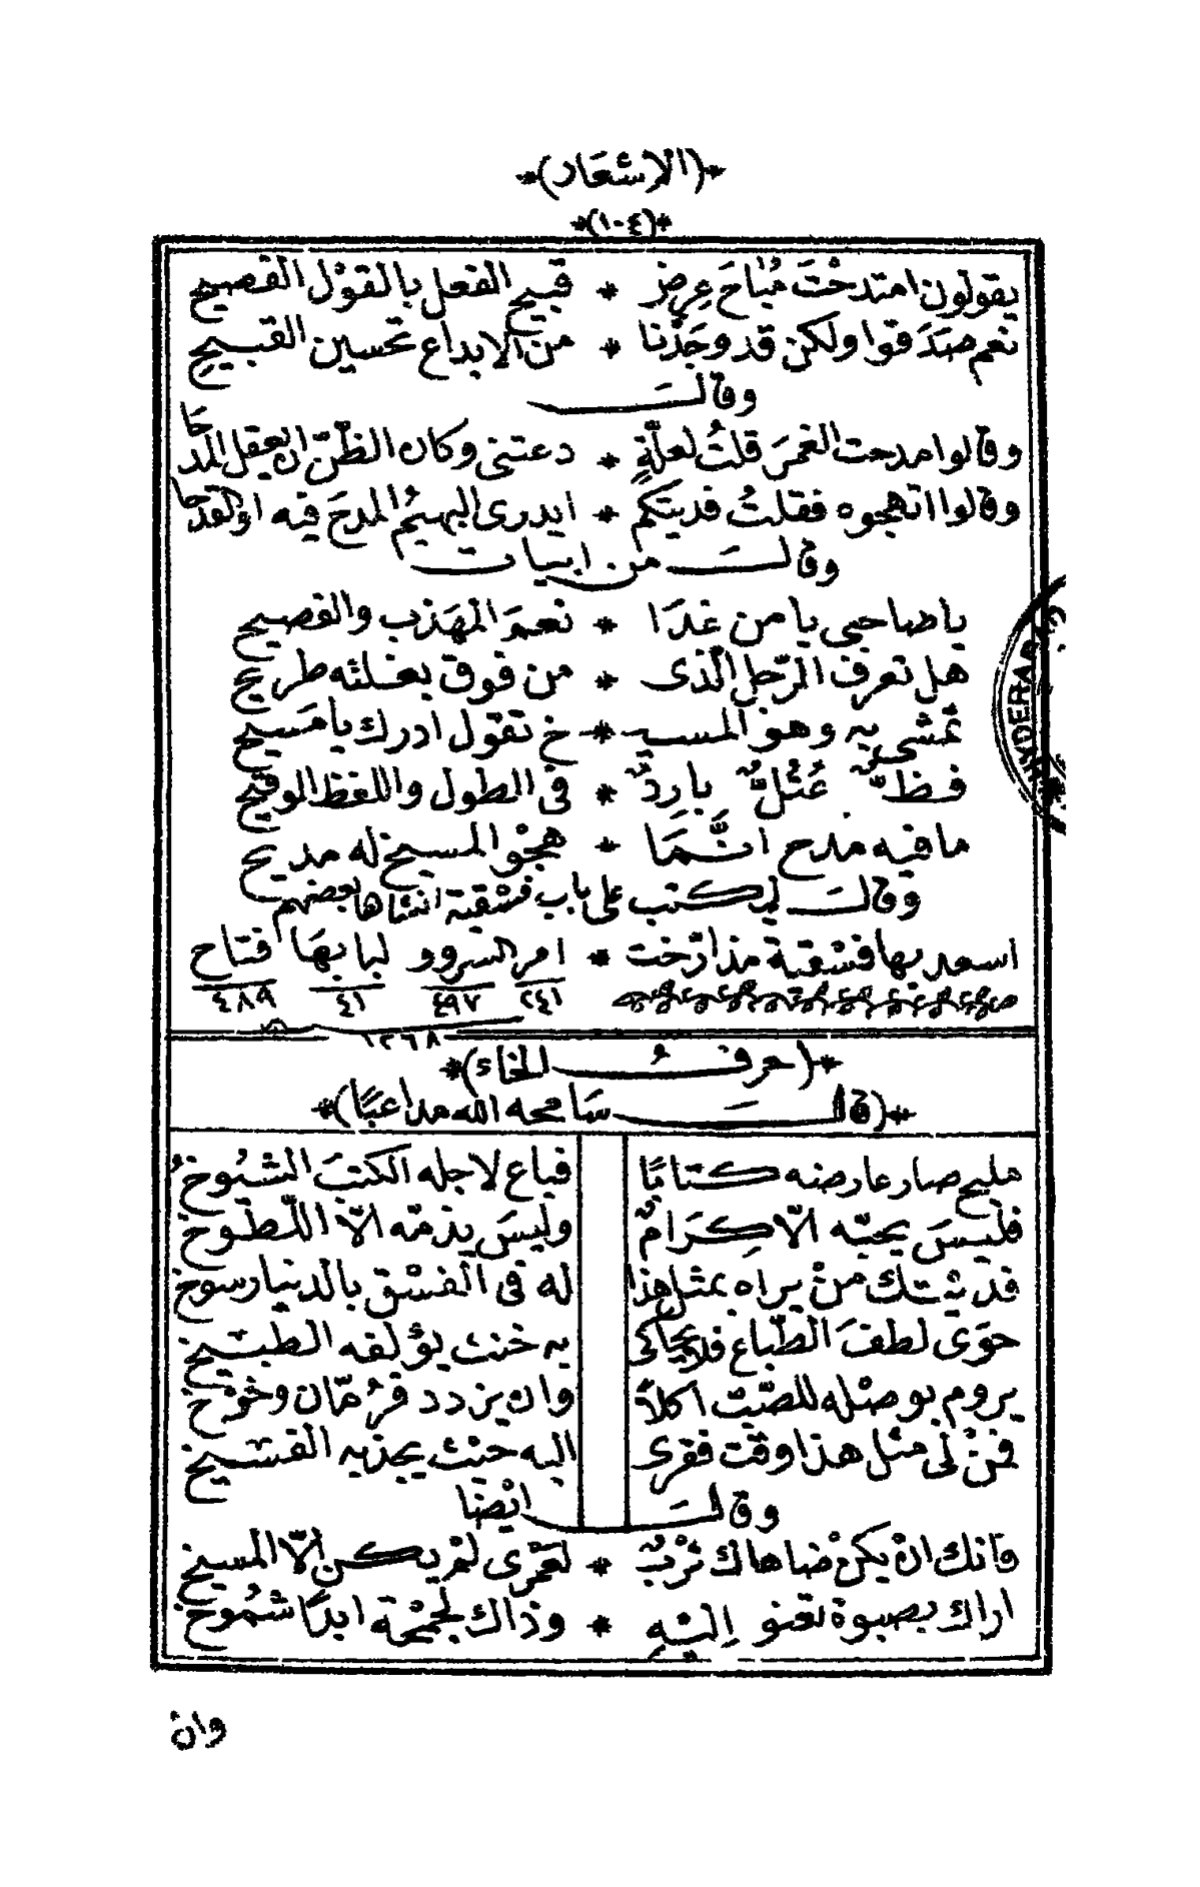 *(الاشعار)*
*(١٠٤)*
يقولون امتدحْتَ مُبَاحَ عِرضٍ * قبيح الفعل بالقوْل الفصيح
نعم صَدَقوا ولكن قد وجَدْنا * من الابداع تحسين القبيحِ
وقالَ
وقالوا مدحت الغمرَ قلتُ لعلّةٍ * دعتنى وكان الظنّ ان يعقل المدحَا
وقالوا اتهجوه فقلتُ فديتكم * ايدرى البهيمُ المدحَ فيه او القدحا
وقالَ من ابيات
ياصاحبى يا من غدَا * نعمَ المهَذب والفصيح
هل تعرف الرّجل الّذى * من فوق بغلته طريح
تمشى به وهو المسيـ * ـخ تقول ادرك يا مَسيح
فظٌّ عُتُلٌّ بارِدٌ * فى الطول واللفظ الوقيح
ما فيه مدح انَّمَا * هجْو المسيخ له مديح
وقالَ ليكتب على باب فسْقية انشاها بعضهم
اسعد بها فسْقية مذ ارّخت * امر السرور لبابهَا فتاح
٢٤١ ٤٩٧ ٤١ ٤٨٩
١٢٦٨
*(حرفُ الخاء)*
*(قالَ سَامحه الله مداعبًا)*
مليح صار عارضه كتابًا فباع لاجله الكتبَ الشيُوخُ
فليسَ يحبّه الّا كِرَامٌ وليسَ يذمّه الّا اللّطوخ
فديْتك منْ يراه بمثل هذا له فى الفسْق بالدنيا رسوخ
حوَى لطفَ الطّباع فلا يحاكى به خنث يؤلفه الطبيخ
يروم بوصْله للصّبّ اكلاً وان يزدد فرُمّان وخوْخ
فمنْ لى مثل هذا وقْت فقرى اليه حيْث يجذبه الفسيخ
وقالَ ايْضًا
فانك انْ يكنْ ضاهاك تربٌ * لعمْرى لمْ يكن الّا المسيخ
اراك بصبوة تعنو اليْه * وذاك لجمْحة ابدًا شمُوخ
وان